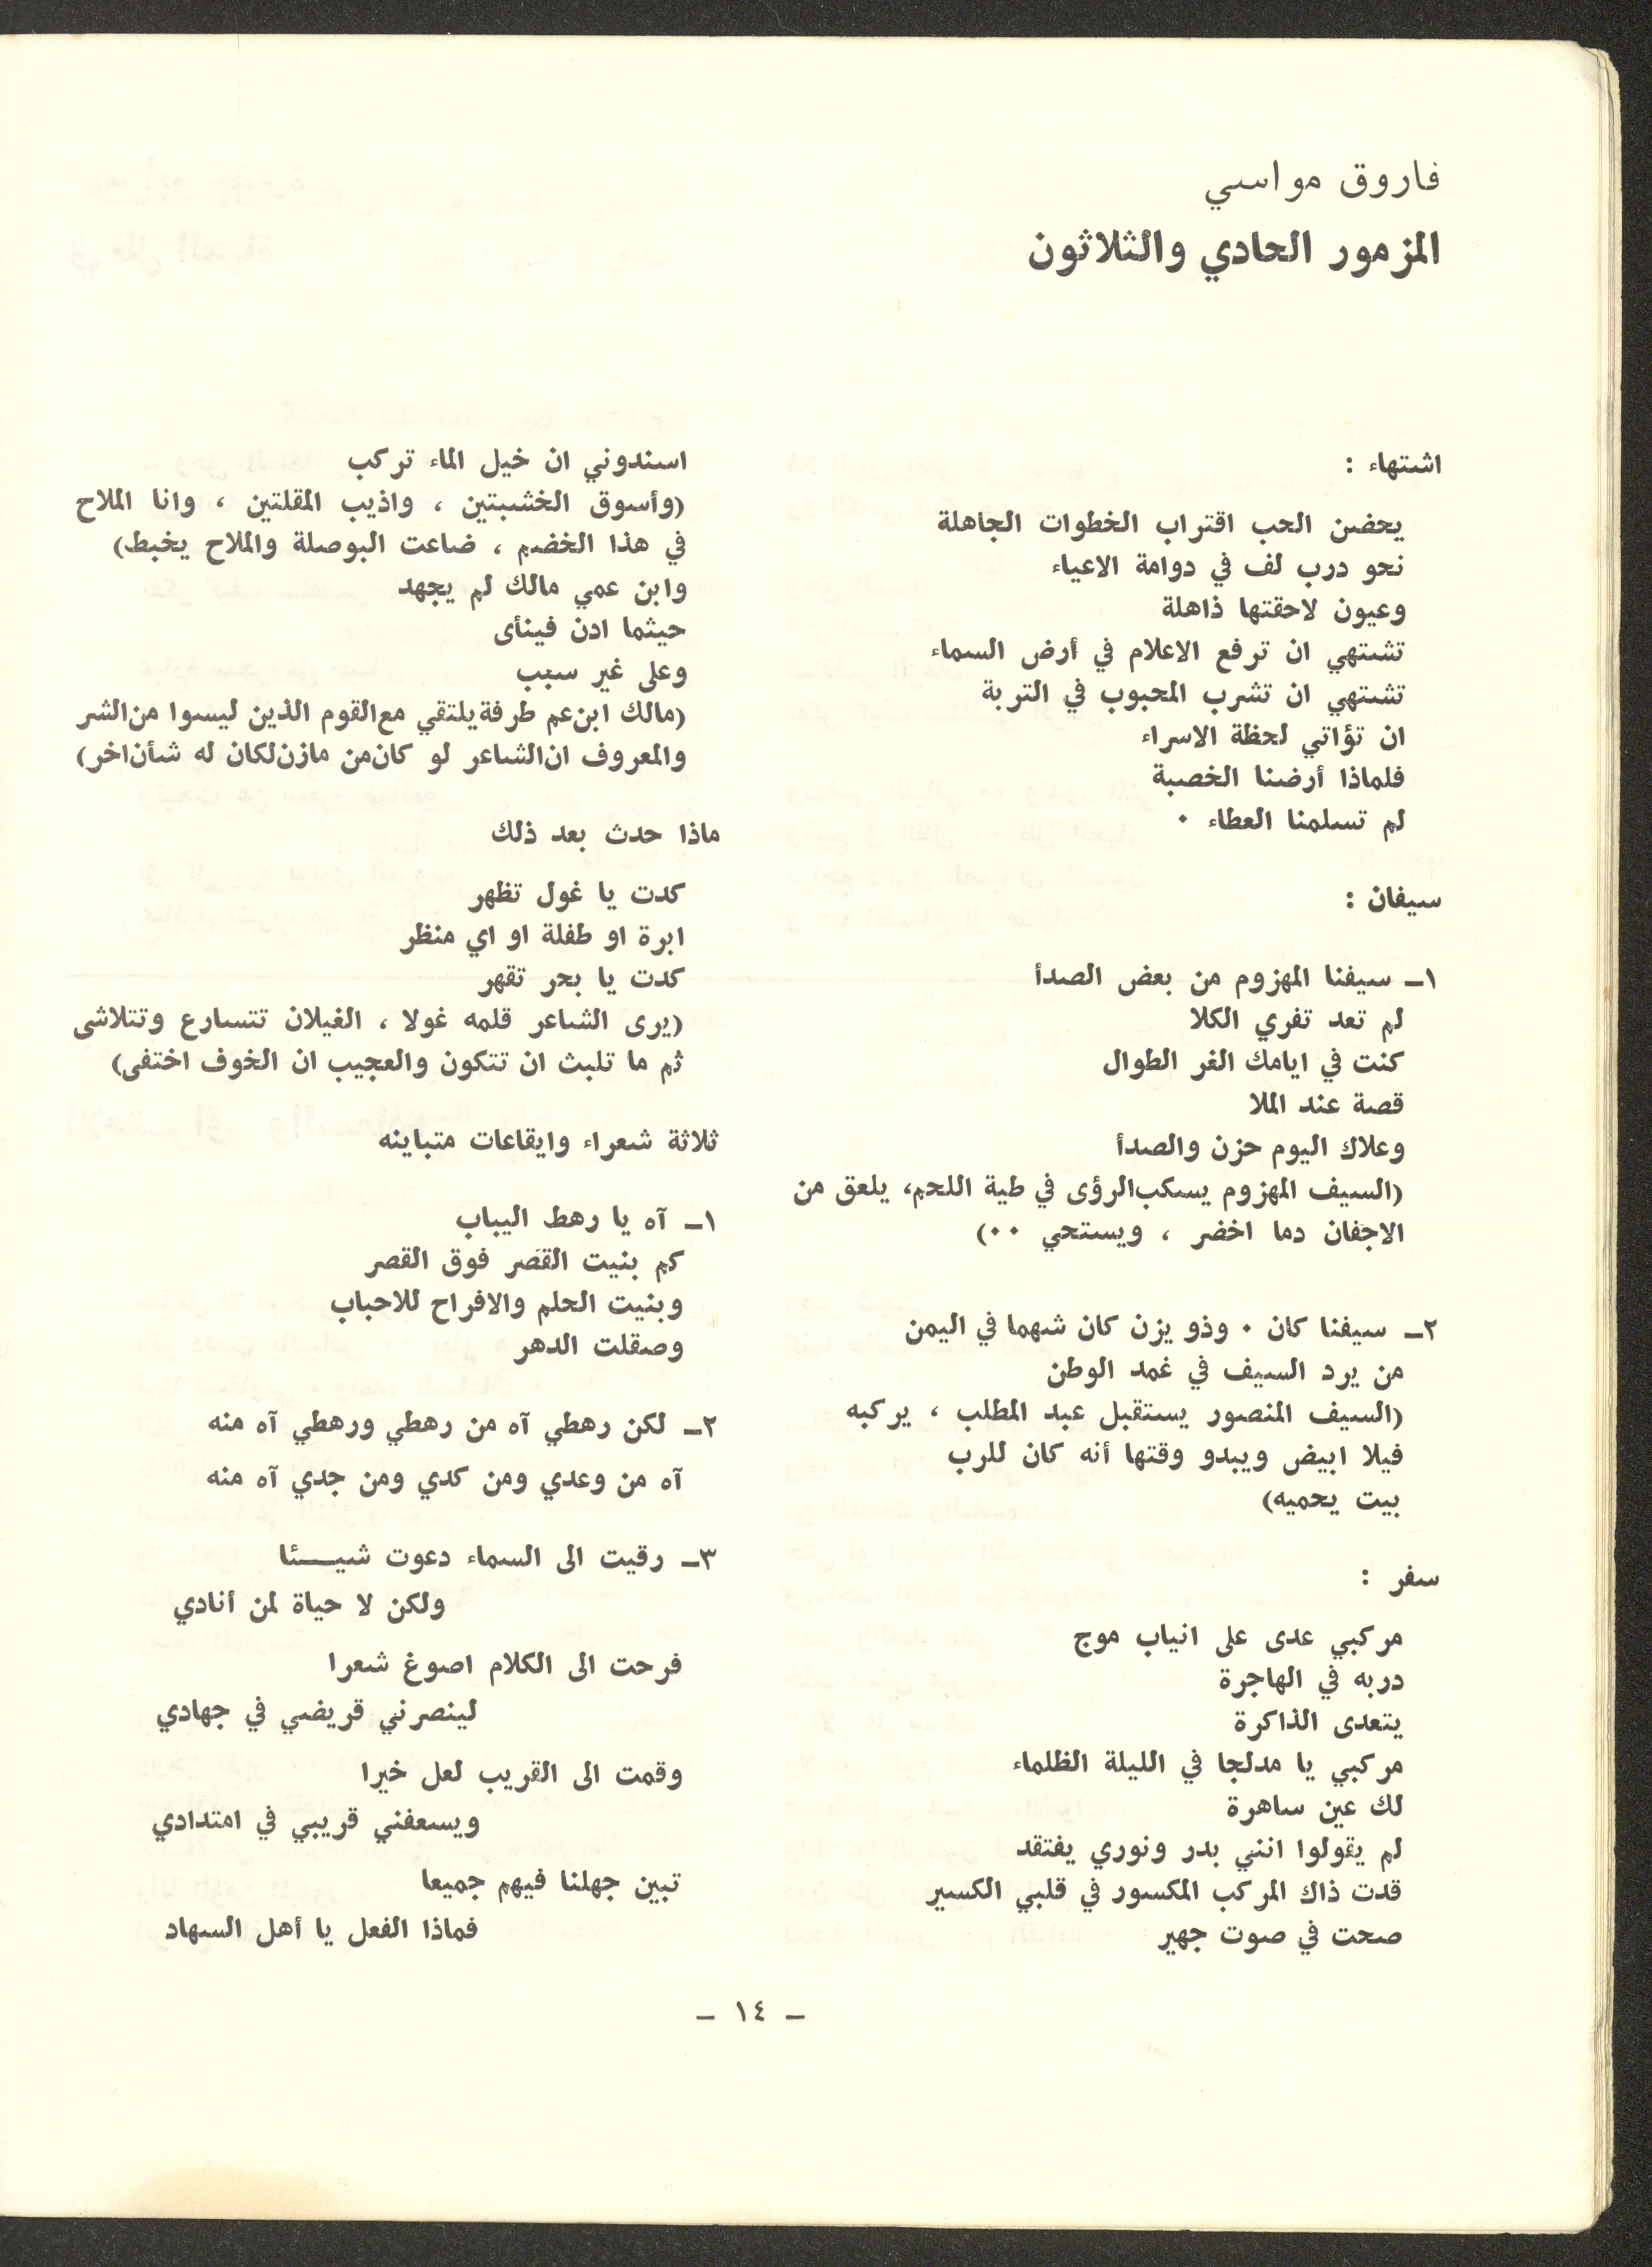 فاروق مواسي
المزمور الحادي والثلاثون
اشتهاء :
يحضن الحب اقتراب الخطوات الجاهلة
نحو درب لف في دوامة الاعياء
وعيون لاحقتها ذاهلة
تشتهي ان ترفع الاعلام في أرض السماء
تشتهي ان تشرب المحبوب في التربة
ان تؤاتي لحظة الاسراء
فلماذا أرضنا الخصبة
لم تسلمنا العطاء ٠
سيفان :
١ـ سيفنا المهزوم من بعض الصدأ
لم تعد تفري الكلا
كنت في ايامك الغر الطوال
قصة عند الملا
وعلاك اليوم حزن والصدأ
(السيف المهزوم يسكب الرؤى في طية اللحم، يلعق من
الاجفان دما اخضر ، ويستحي ٠٠)
٢ـ سيفنا كان ٠ وذو يزن كان شهما في اليمن
من يرد السيف في غمد الوطن
(السيف المنصور يستقبل عبد المطلب ، يركبه
فيلا ابيض ويبدو وقتها أنه كان للرب
بيت يحميه)
سفر :
مركبي عدى على انياب موج
دربه في الهاجرة
يتعدى الذاكرة
مركبي يا مدلجا في الليلة الظلماء
لك عين ساهرة
لم يقولوا انني بدر ونوري يفتقد
قدت ذاك المركب المكسور في قلبي الكسير
صحت في صوت جهير
اسندوني ان خيل الماء تركب
(وأسوق الخشبتين ، واذيب المقلتين ، وانا الملاح
في هذا الخضم ، ضاعت البوصلة والملاح يخبط)
وابن عمي مالك لم يجهد
حيثما ادن فينأى
وعلى غير سبب
(مالك ابن عم طرفة يلتقي مع القوم الذين ليسوا من الشر
والمعروف ان الشاعر لو كان من مازن لكان له شأن اخر)
ماذا حدث بعد ذلك
كدت يا غول تظهر
ابرة او طفلة او اي منظر
كدت يا بحر تقهر
(يرى الشاعر قلمه غولا ، الغيلان تتسارع وتتلاشى
ثم ما تلبث ان تتكون والعجيب ان الخوف اختفى)
ثلاثة شعراء وايقاعات متباينه
١ـ آه يا رهط اليباب
كم بنيت القصر فوق القصر
وبنيت الحلم والافراح للاحباب
وصقلت الدهر
٢ـ لكن رهطي آه من رهطي ورهطي آه منه
آه من وعدي ومن كدي ومن جدي آه منه
٣ـ رقيت الى السماء دعوت شيــــئا
ولكن لا حياة لمن أنادي
فرحت الى الكلام اصوغ شعرا
لينصرني قريضي في جهادي
وقمت الى القريب لعل خيرا
ويسعفني قريبي في امتدادي
تبين جهلنا فيهم جميعا
فماذا الفعل يا أهل السهاد
ـ ١٤ ـ